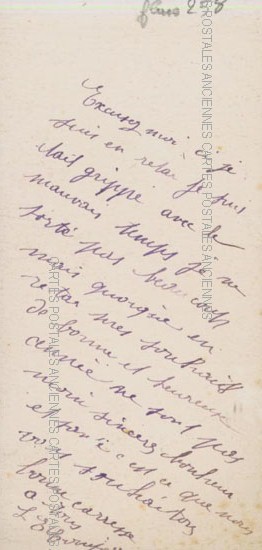 fleurs
Excusez moi, si je
suis en retar je suis
était grippé avec le
mauvais temps je ne
sorté pas beaucoup
mais quoique en
retar mes souhaits
de bonne et heureuse
année ne sont pas
moin sincère bonheur
et santé c'est ce que nous
vous souhaitons
bonne caresse
a
CARTES POSTALES ANCIENNES CARTES POSTALES ANCIENNES CARTES POSTALES ANCIENNES
CARTES POSTALES ANCIENNES CARTES POSTALES ANCIENNES